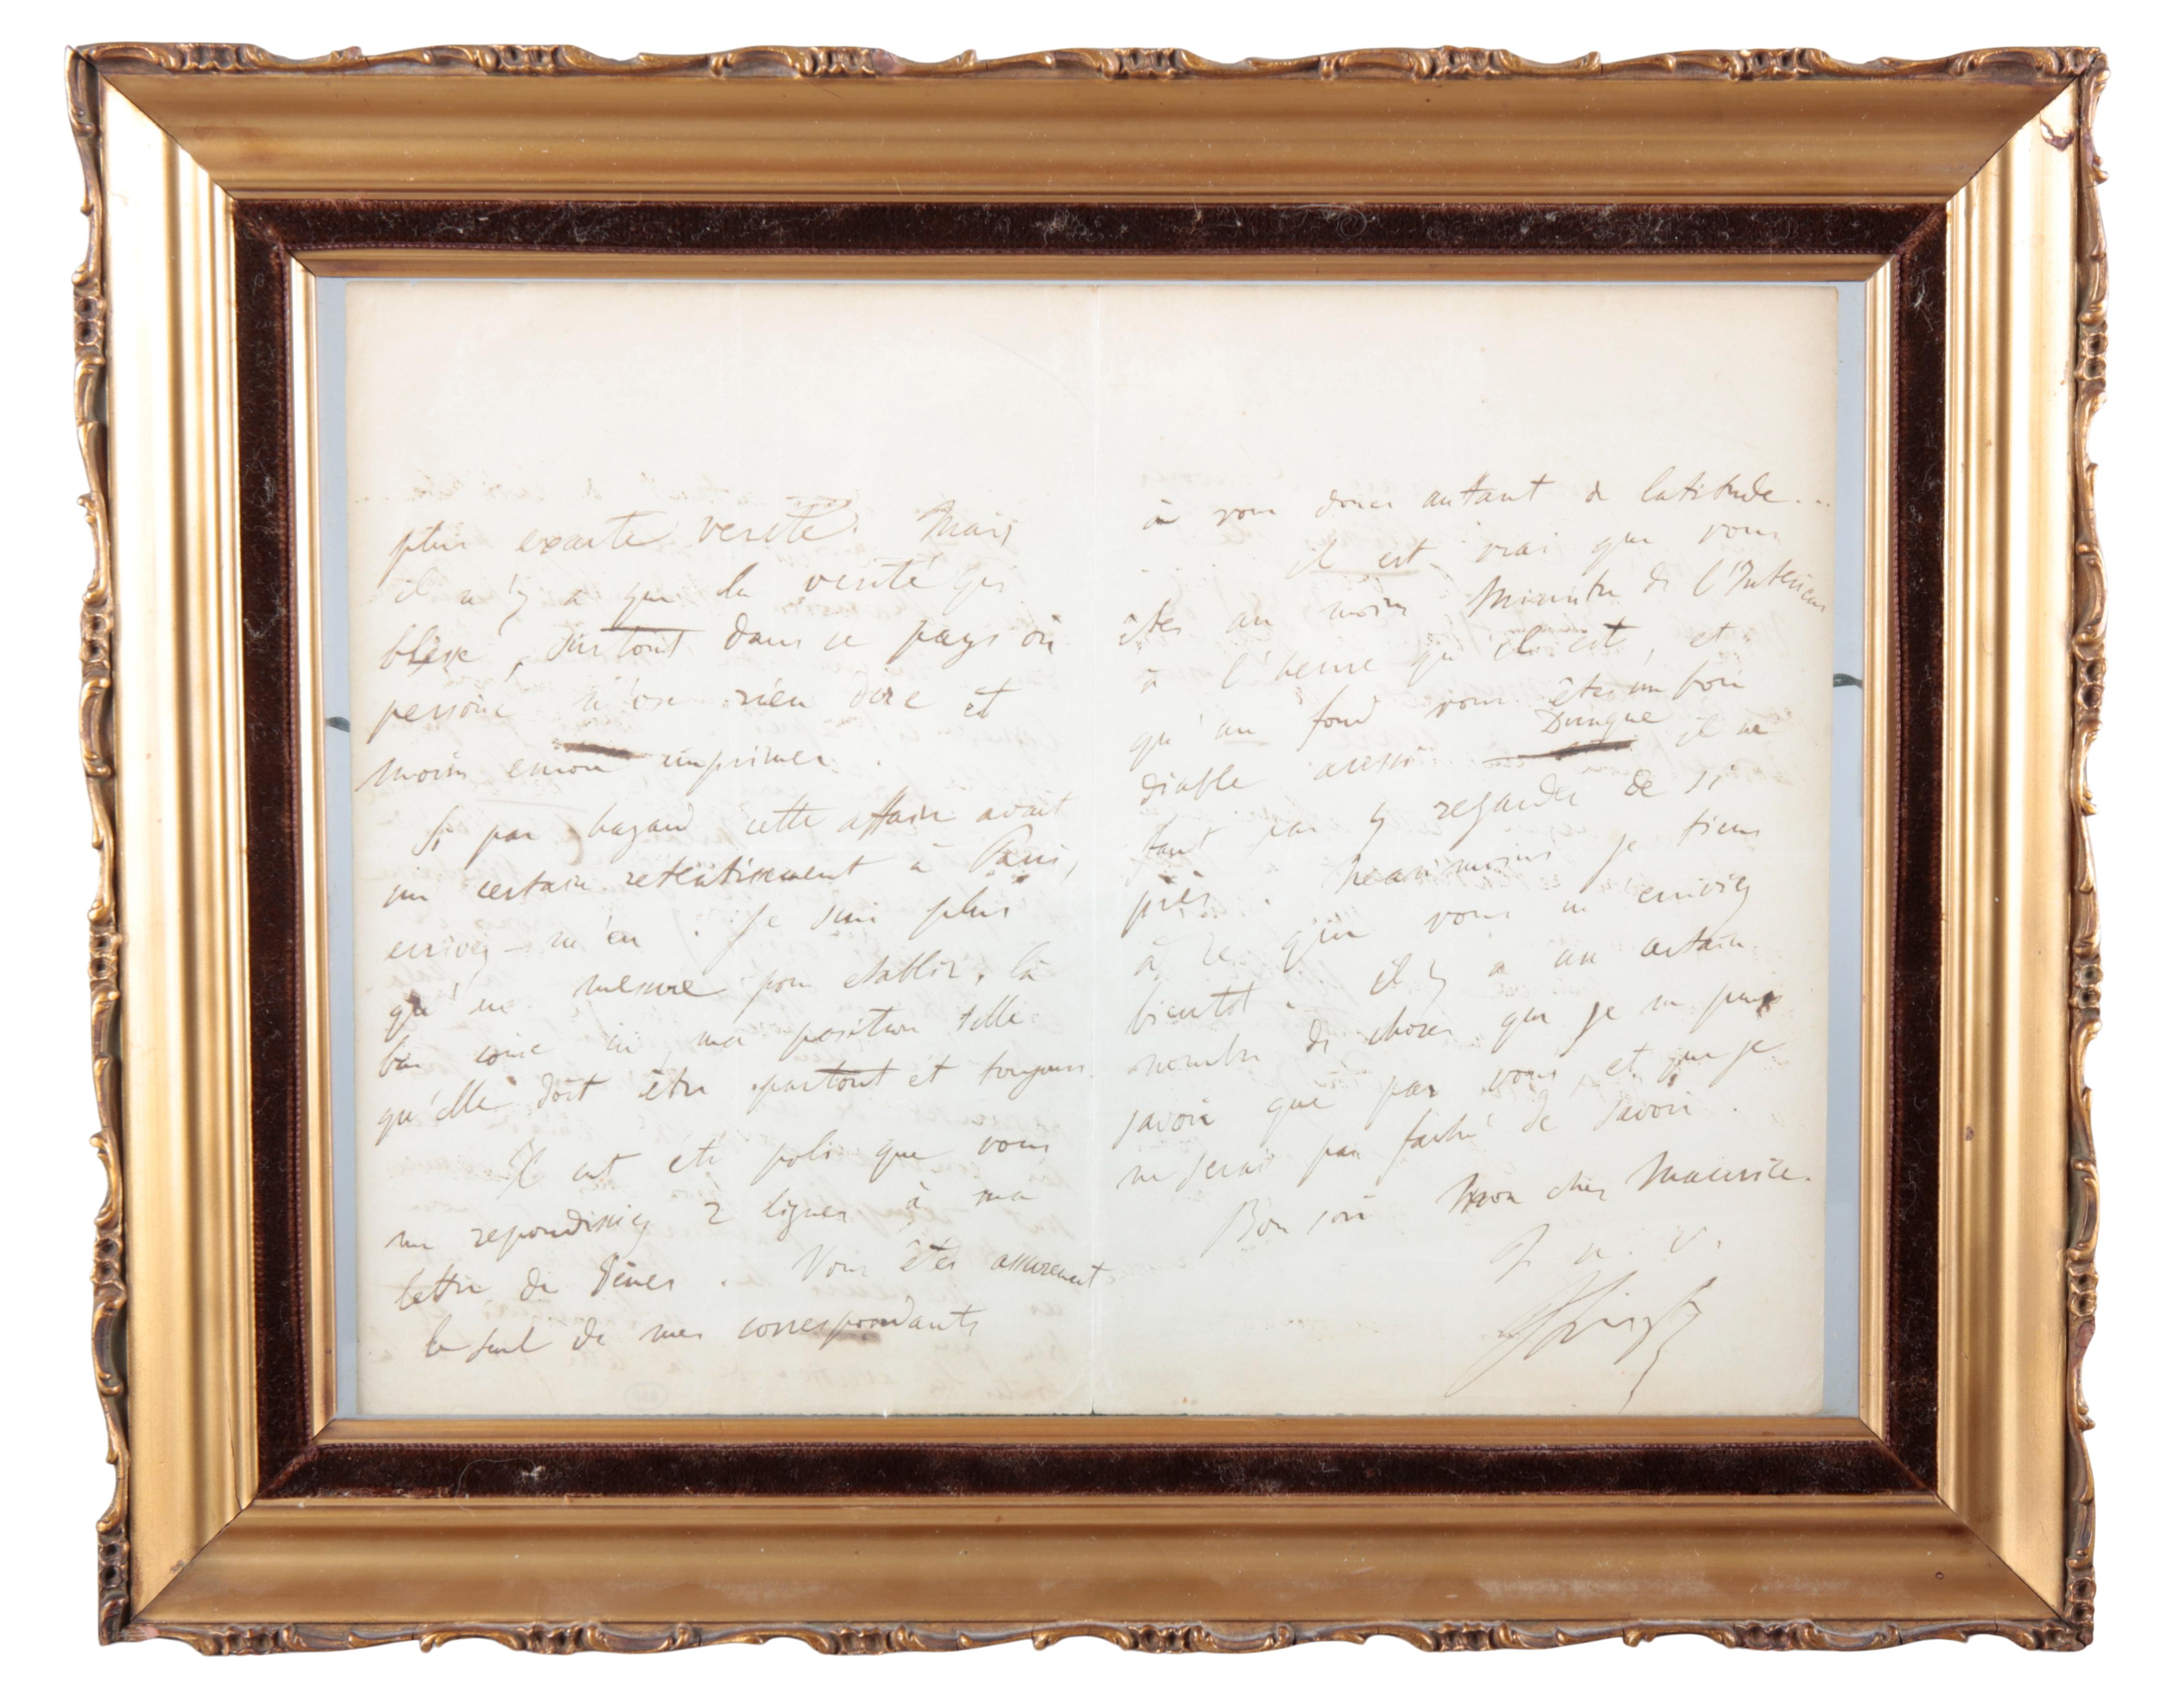 plus exacte verité. Mais
il n'y a que la verité qui
blesse, surtout dans ce pays où
persone n'ose rien dire et
moins encore imprimer.
Si par hazard cette affaire avait
un certain retentissement à Paris,
ecrivez-m'en. Je suis plus
qu'en mesure pour etablir, là
bas come ici, ma position telle
qu'elle doit être partout et toujours.
Il eut été poli que vous
me repondissiez 2 lignes à ma
lettre de Gênes. Vous êtes assurement
le seul de mes correspondants
à vous donner auttant de latitude...
il est vrai que vous
êtes au moins Ministre de l'Interieur
à l'heure qu'il est, et
qu'au fond vous êtes un bon
diable aussi. Dunque il ne
faut pas y regarder de si
près. Neanmoins je tiens
à ce que vous m'ecriviez
bientot. Il y a un certain
nombre de choses que je ne puis
savoir que par vous, et que je
ne serai pas faché de savoir.
Bon soir mon cher Maurice.
F. Liszt